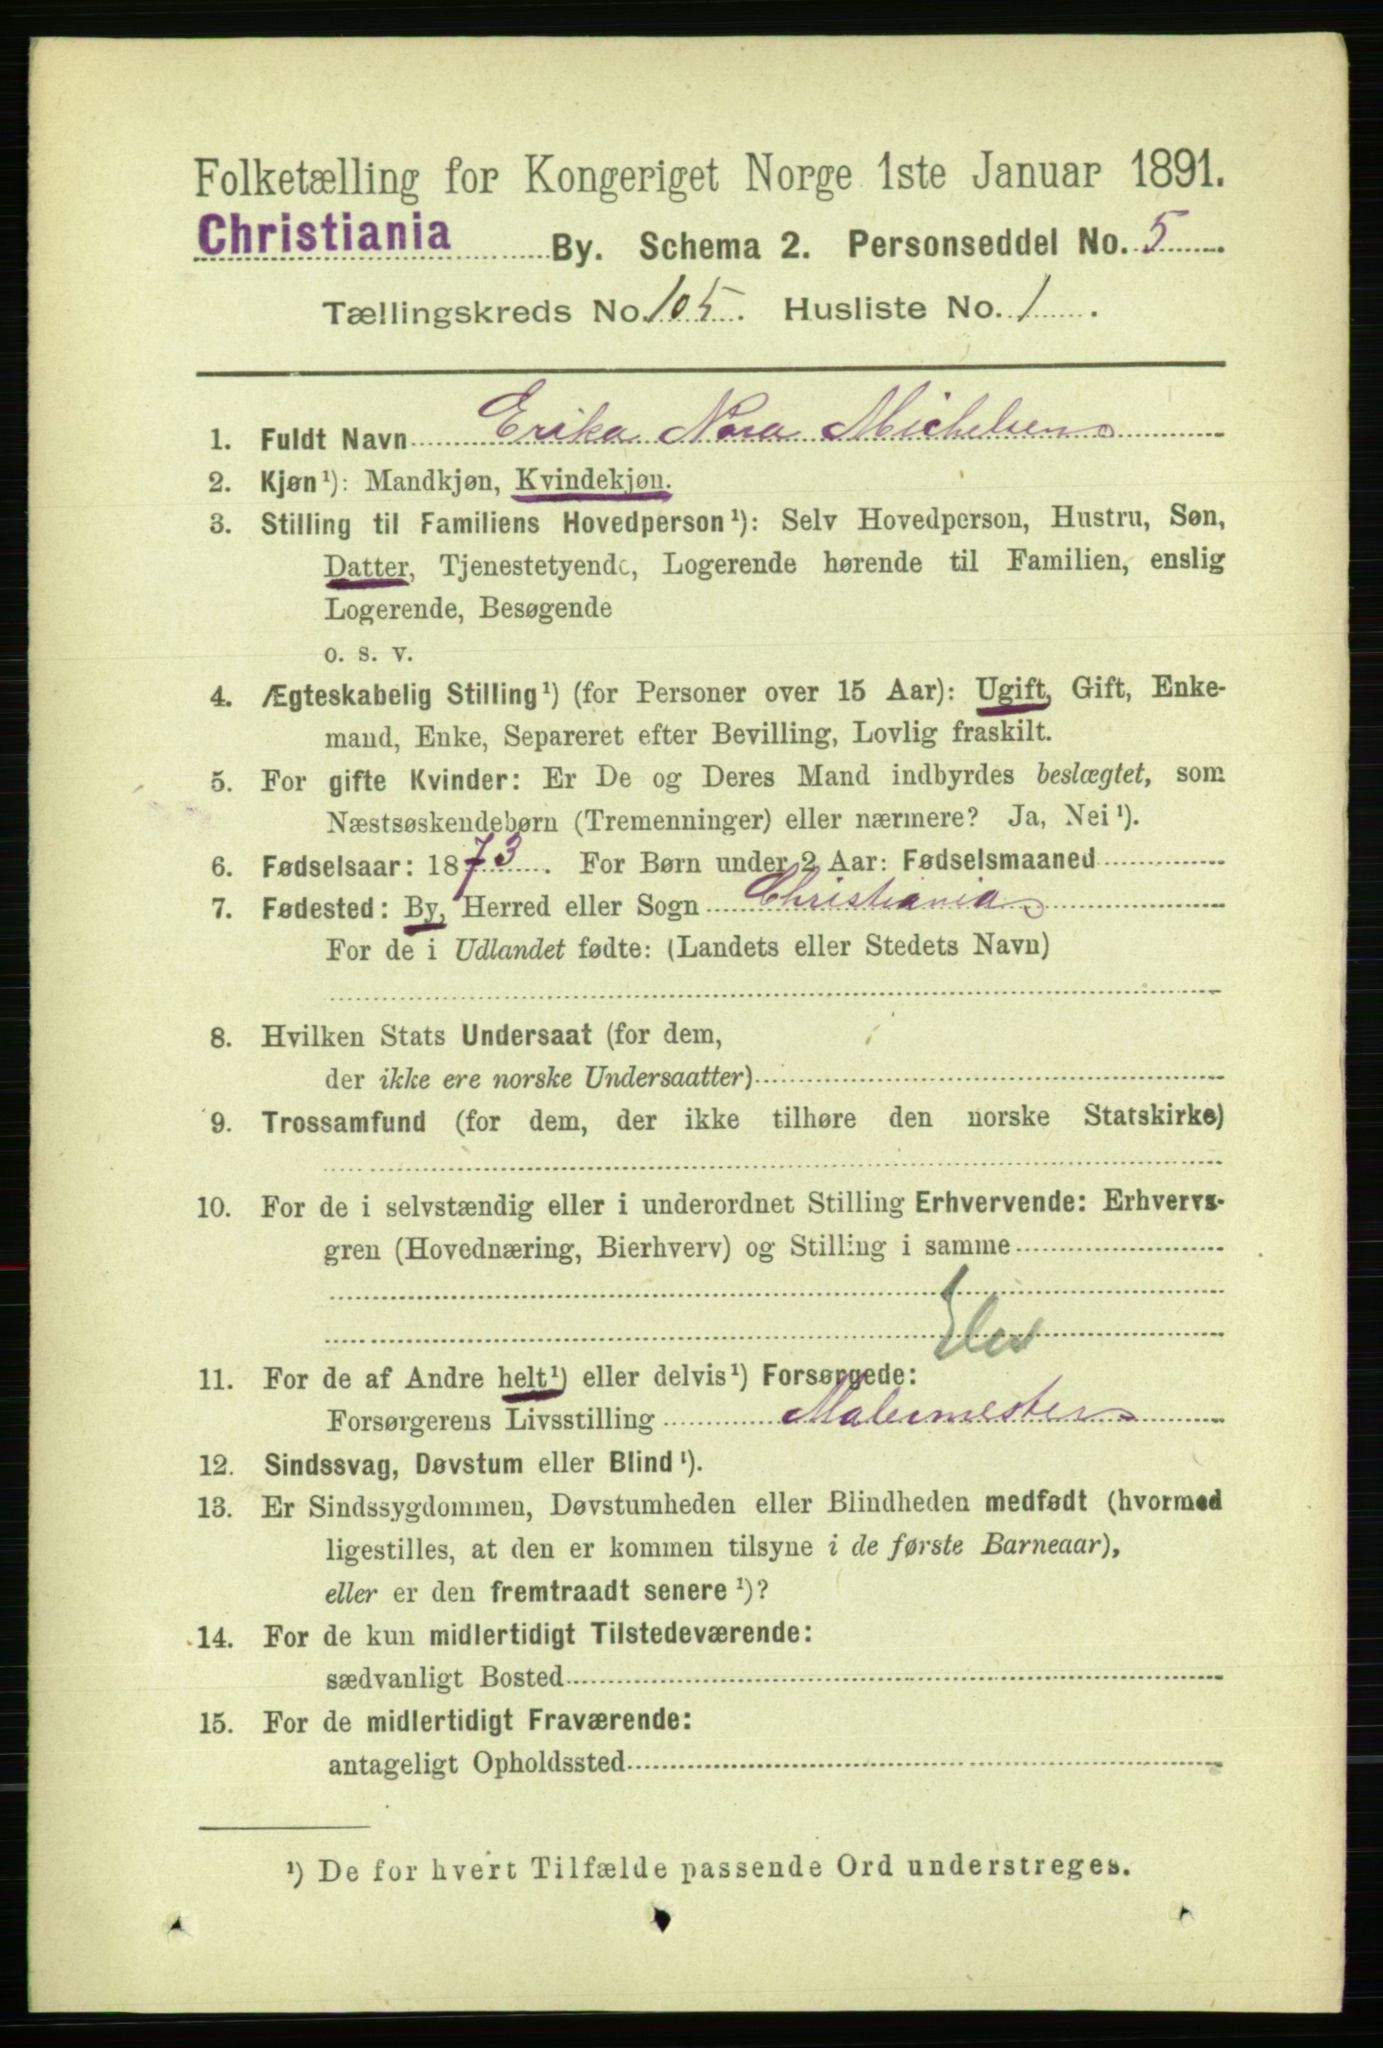 Folketælling for Kongeriget Norge 1ste Januar 1891.
Christiania By. Schema 2. Personseddel No. 5
Tællingskreds No. 105. Husliste No. 1.
1. Fuldt Navn Erika Nora Michelsen
2. Kjøn¹): Mandkjøn, Kvindekjøn.
3. Stilling til Familiens Hovedperson¹): Selv Hovedperson, Hustru, Søn,
Datter, Tjenestetyende, Logerende hørende til Familien, enslig
Logerende, Besøgende
o. s. v.
4. Ægteskabelig Stilling¹) (for Personer over 15 Aar): Ugift, Gift, Enke-
mand, Enke, Separeret efter Bevilling, Lovlig fraskilt.
5. For gifte Kvinder: Er De og Deres Mand indbyrdes beslægtet, som
Næstsøskendebørn (Tremenninger) eller nærmere? Ja, Nei¹).
6. Fødselsaar: 1873. For Børn under 2 Aar: Fødselsmaaned
7. Fødested: By, Herred eller Sogn Christiania
For de i Udlandet fødte: (Landets eller Stedets Navn)
8. Hvilken Stats Undersaat (for dem,
der ikke ere norske Undersaatter)
9. Trossamfund (for dem, der ikke tilhøre den norske Statskirke)
10. For de i selvstændig eller i underordnet Stilling Erhvervende: Erhvervs-
gren (Hovednæring, Bierhverv) og Stilling i samme
Elev
11. For de af Andre helt¹) eller delvis¹) Forsørgede:
Forsørgerens Livsstilling Malermester
12. Sindssvag, Døvstum eller Blind¹).
13. Er Sindssygdommen, Døvstumheden eller Blindheden medfødt (hvormed
ligestilles, at den er kommen tilsyne i de første Barneaar),
eller er den fremtraadt senere¹)?
14. For de kun midlertidigt Tilstedeværende:
sædvanligt Bosted
15. For de midlertidigt Fraværende:
antageligt Opholdssted
¹) De for hvert Tilfælde passende Ord understreges.